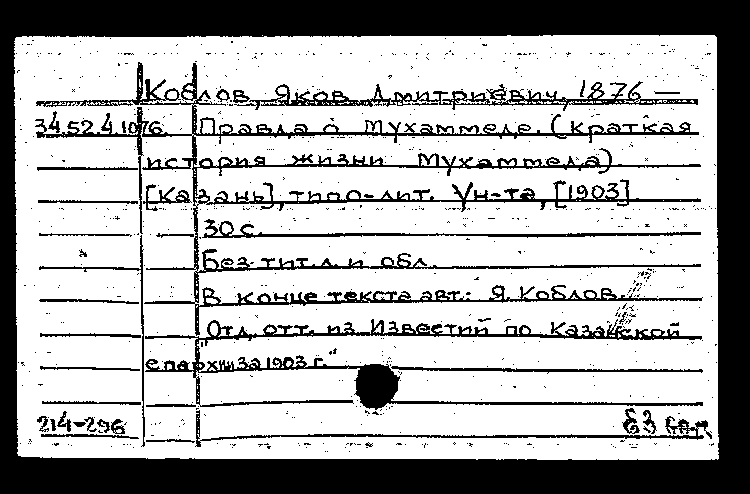 Коблов, Яков Дмитриевич, 1876 —
34.52.4.1076. Правда о Мухаммеде. (Краткая
история жизни Мухаммеда).
[Казань], типо-лит. Ун-та, [1903].
30 с.
Без тит. л. и обл.
В конце текста авт.: Я. Коблов.
"Отд. отт. из Известий по Казанской
епархии за 1903 г."
214-296